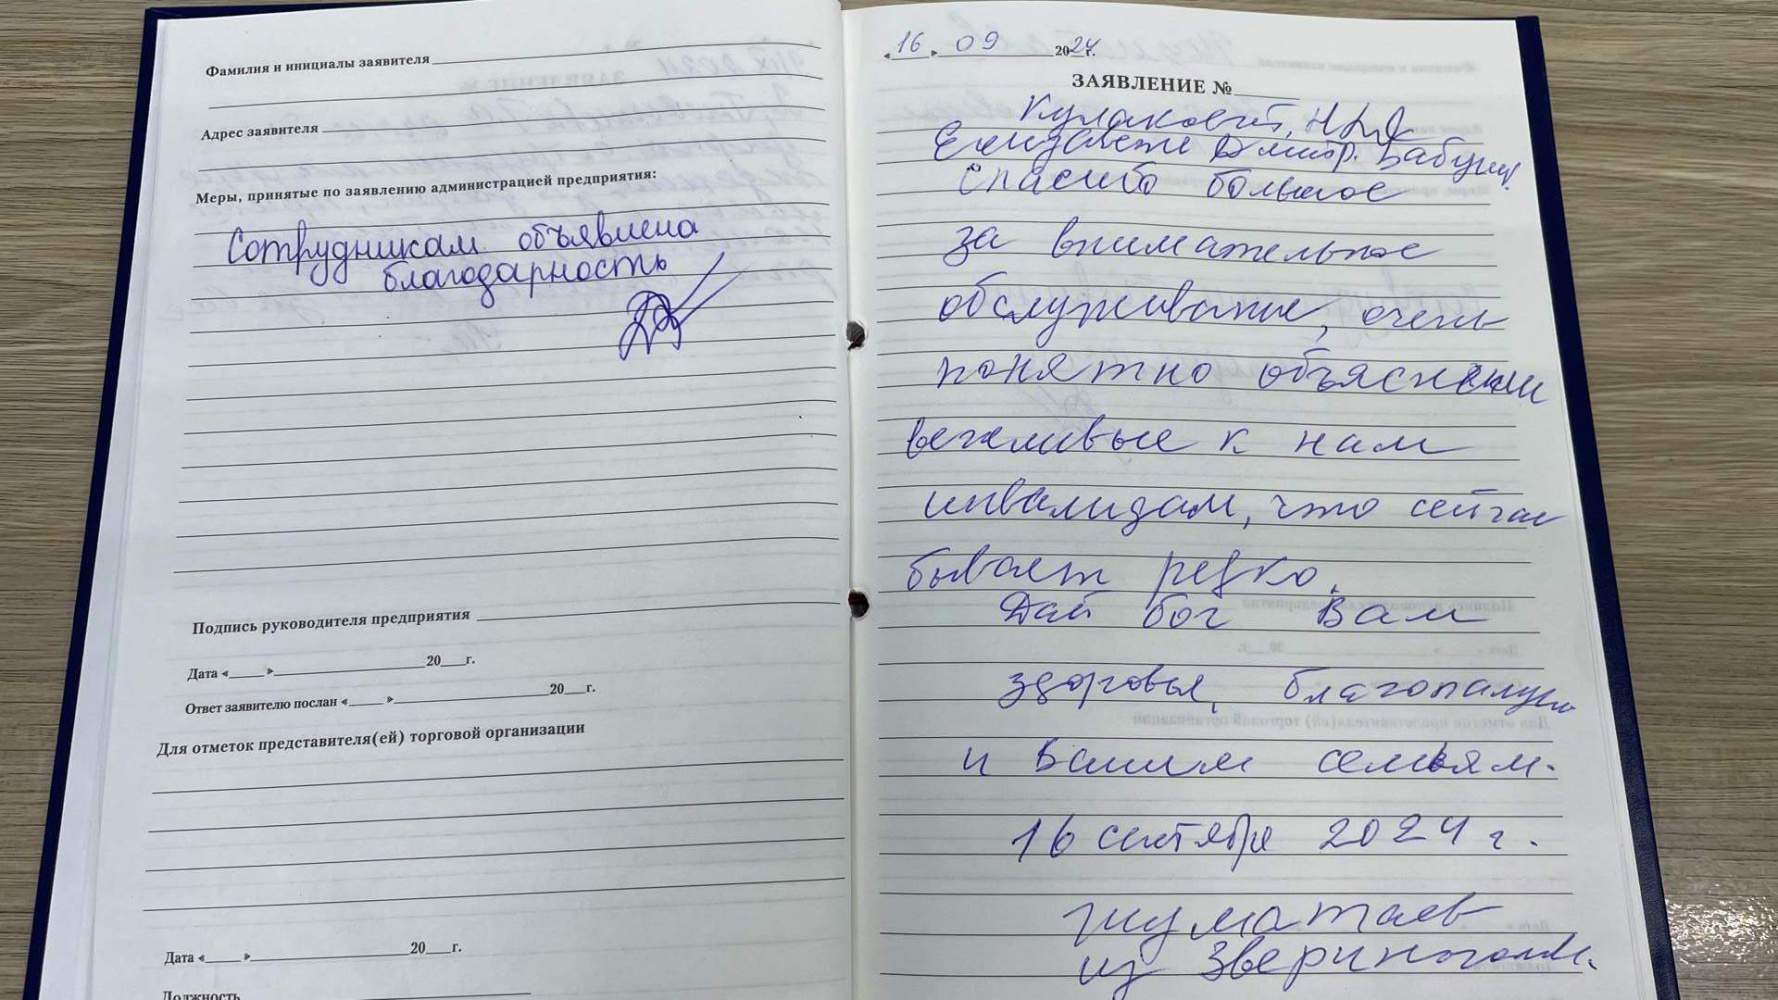 Фамилия и инициалы заявителя
Адрес заявителя
Меры, принятые по заявлению администрацией предприятия:
Сотрудникам объявлена
благодарность
Подпись руководителя предприятия
Дата «___» 20__г.
Ответ заявителю послан «___» 20__г.
Для отметок представителя(ей) торговой организации
Дата «___» 20__г.
Должность
«16» 09 2024г.
ЗАЯВЛЕНИЕ №
Елизавете Дмитр.
Спасибо большое
за внимательное
обслуживание, очень
понятно объяснили
вежливые к нам
инвалидам, что сейчас
бывает редко.
Дай бог Вам
здоровья, благополучия
и Вашим семьям.
16 сентября 2024 г.
Жуматаев
из Звериноголов.